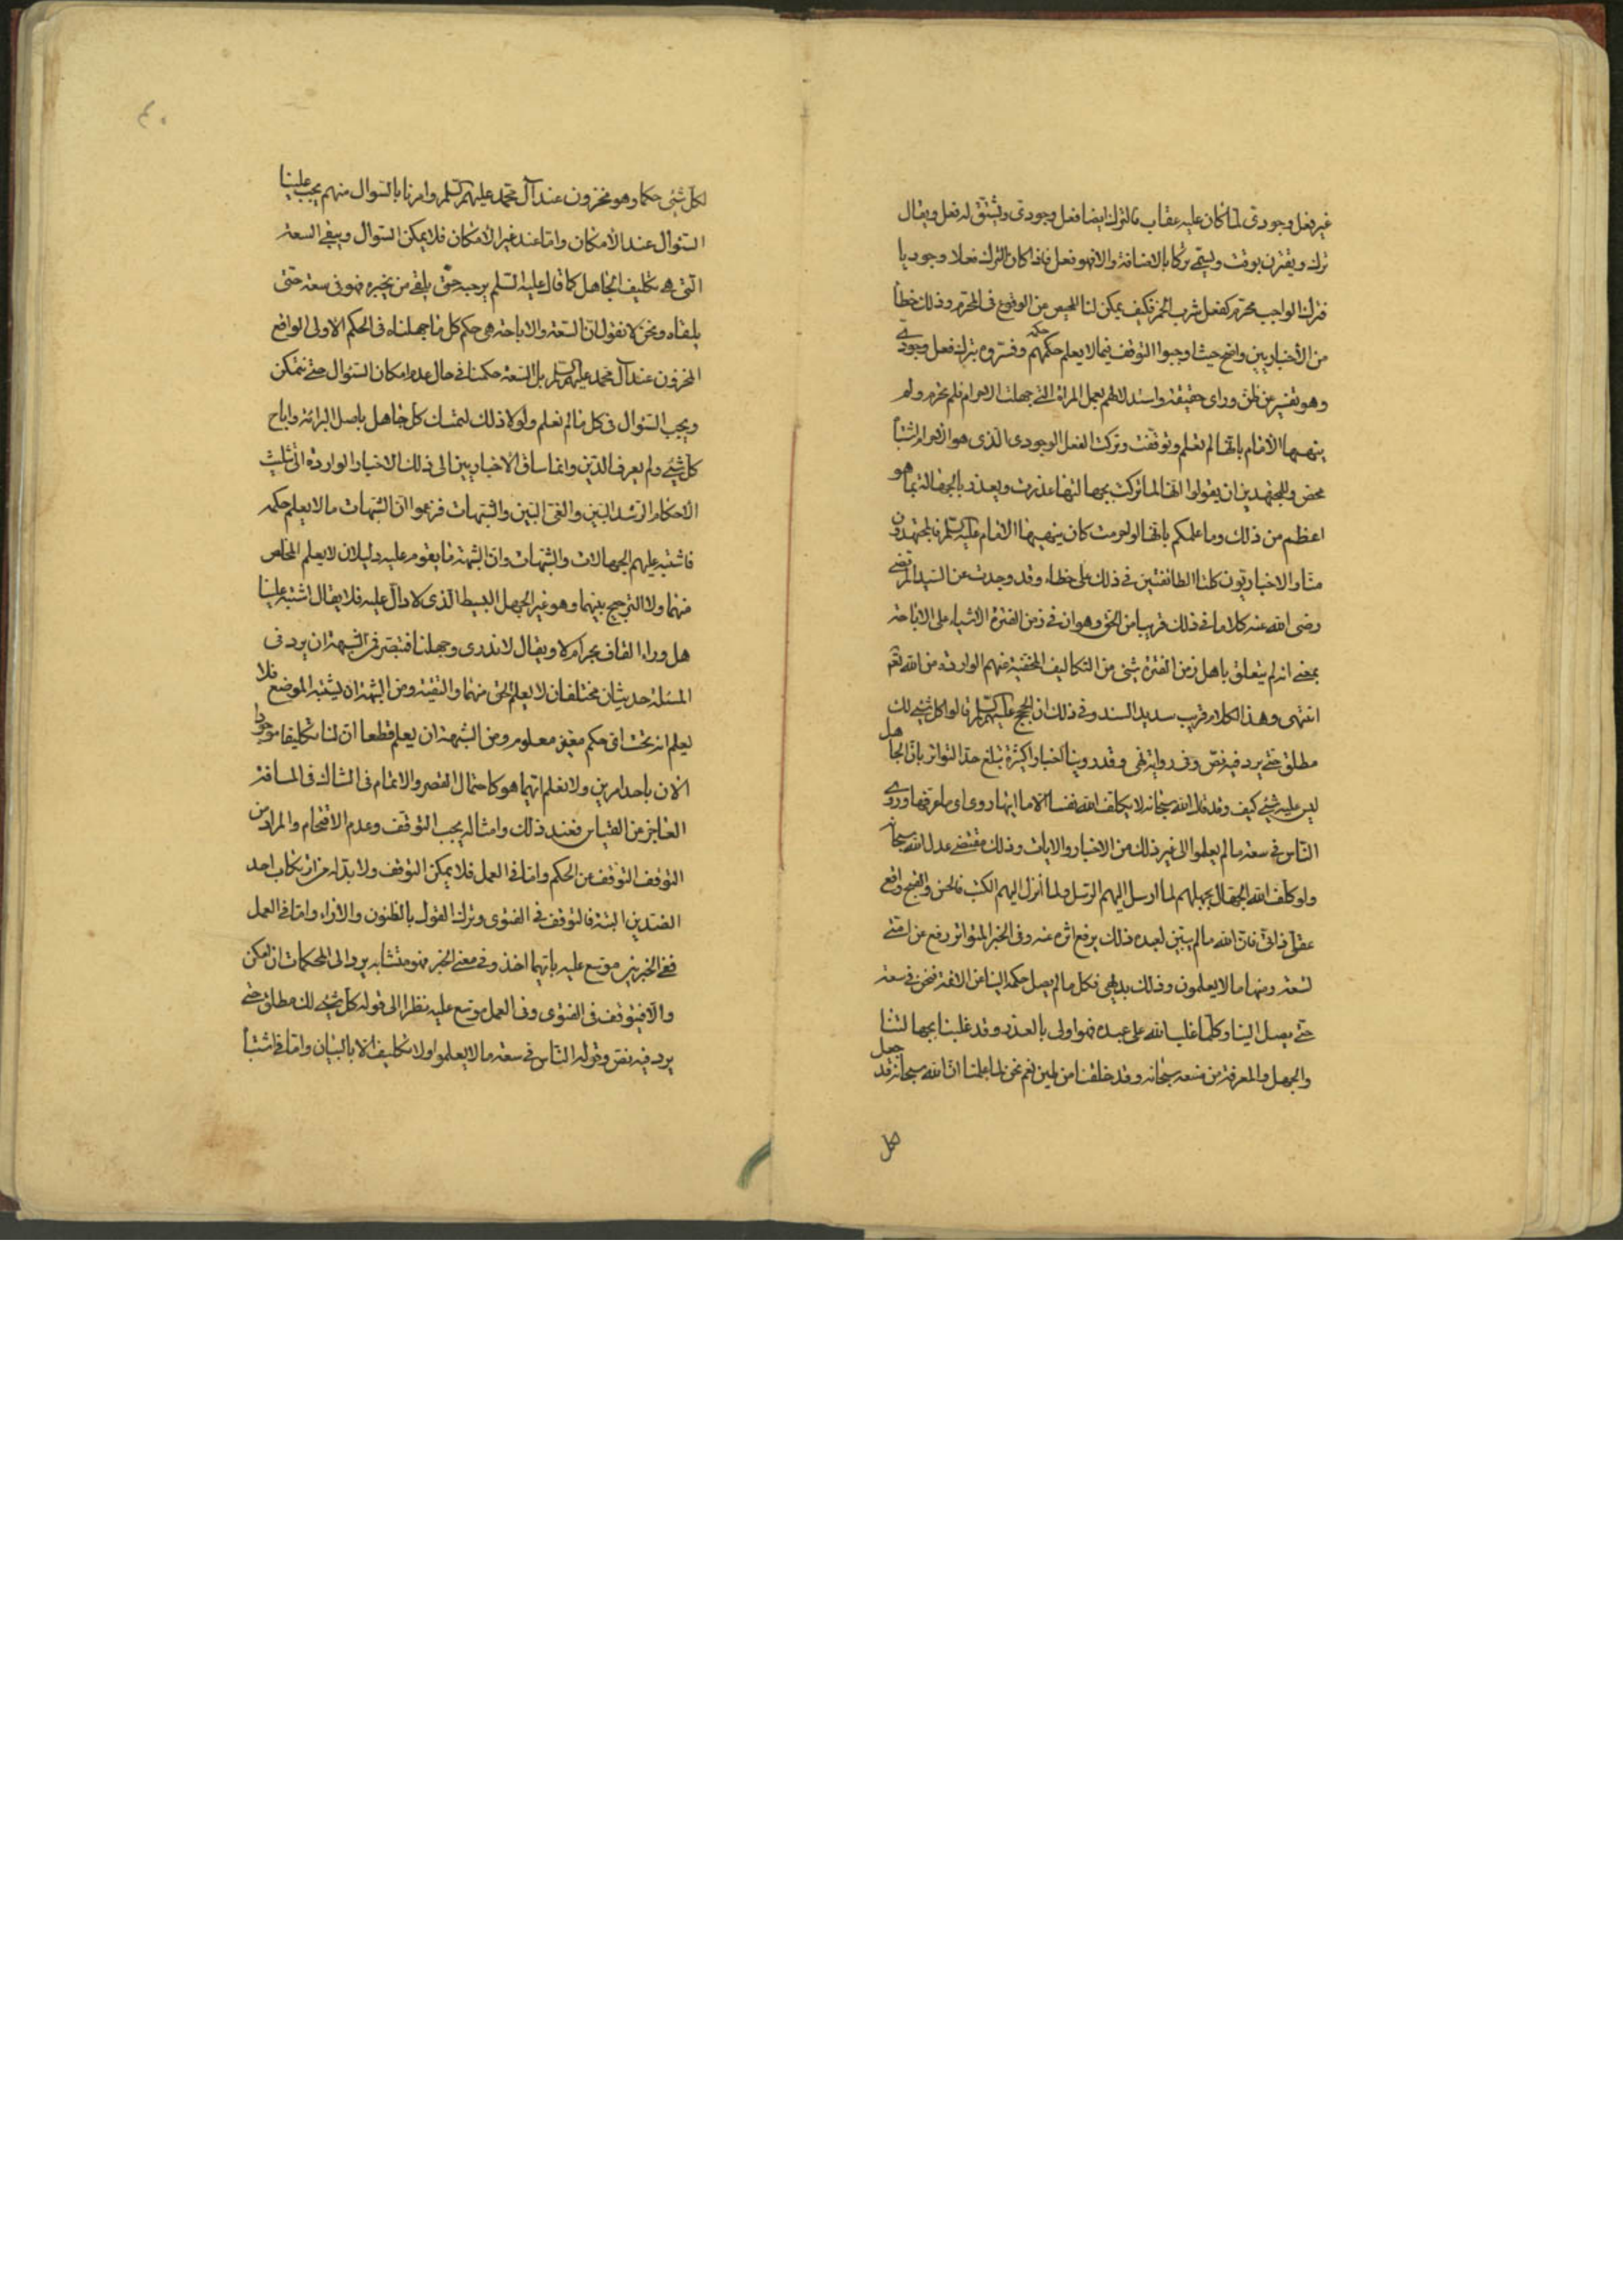 غير فعل وجودى لما كان عليه عقاب فالترك ايضا فعل وجودى ويشتق له فعل ويقال
ترك ويقترن بوقت ويسمى تركا بالاضافة والا فهو فعل فاذا كان الترك فعلا وجوديا
فترك الواجب محرم كفعل شرب الخمر فكيف يمكن لنا المحيص من الوقوع فى المحرم وذلك خطأ
من الأخباريين واضح حيث اوجبوا التوقف فيما لا يعلم حكمه حكمهم وفسروه بترك فعل وجودى
وهو تفسير عن ظن وراى حقيقة واستدلالهم بعمل المراة التى جهلت الاحرام فلم تحرم ولم
ينهها الأمام بانها لم تعلم وتوقفت وتركت الفعل الوجودى الذى هو الاحرام اشتباه
محض وللمجتهدين ان يقولوا انها لما تركت بجهالتها عذرت ويعذر بالجهالة بما هو
اعظم من ذلك وما علمكم بانها لو احرمت كان ينهيها الامام عليه السلم فالمجتهدون
منا والاخباريون كلتا الطائفتين فى ذلك على خطاء وقد وجدت عن السيد المرتضى
رضى الله عنه كلاما فى ذلك قريبا من الحق وهو ان فى زمن الفترة الاشياء على الاباحة
بمعنى انه لم يتعلق باهل زمن الفترة شئ من التكاليف المخفية عنهم الواردة من الله تعم
انتهى وهذا الكلام قريب سديد السند وفى ذلك ان الحجج عليهم السلم قالوا كل شئ لك
مطلق حتى يرد فيه نص وفى رواية نهى وقد روينا اخبارا كثيرة تبلغ حد التواتر بان الجاهل
ليس عليه شئ كيف وقد قال الله سبحانه لا يكلف الله نفسا الا ما اتيها روى اى ما عرفها وروى
الناس فى سعة ما لم يعلموا الى غير ذلك من الاخبار والايات وذلك مقتضى عدل الله سبحانه
ولو كلف الله الجهال بجهلهم لما ارسل اليهم الرسل ولما انزل اليهم الكتب فالحسن والقبح واقع
عقلى ذاتى فان الله ما لم يبين لعبده ذلك يرفع اثره عنه وفى الخبر المتواتر رفع عن امتى
تسعة ومنها ما لا يعلمون وذلك بديهى فكل ما لم يصل حكمه الينا من الائمة فنحن فى سعة
حتى يصل الينا وكلما غلب الله على عبده فهو اولى بالعذر وقد غلبنا بجهالتنا
والجهل والمعرفة من صنعه سبحانه وقد خلقنا من طين نعم نحن لما علمنا ان الله سبحانه قد جعل
لكل
لكل شئ حكما وهو مخزون عند آل محمد عليهم السلم وامرنا بالسوال منهم يجب علينا
السئوال عند الأمكان واما عند غير الأمكان فلا يمكن السوال ويبقى السعة
التى هى تكليف الجاهل كما قال عليه السلم يرجه حتى يلقى من يخبره فهو فى سعة حتى
يلقاه ونحن لا نقول ان السعة والاباحة هى حكم كل ما جهلناه فى الحكم الاولى الواقع
المخزون عند آل محمد عليهم السلم بل السعة حكمنا فى حال عدم امكان السئوال حتى نتمكن
ويجب السئوال فى كل ما لم نعلم ولولا ذلك لتمسك كل جاهل باصل البرائة واباح
كل شئ ولم يعرف الدين وانما ساق الاخباريين الى ذلك الاخبار الواردة فى تثليث
الاحكام الرشد البين والغى البين والشبهات فزعموا ان الشبهات ما لا يعلم حكمه
فاشتبه عليهم الجهالات والشبهات وان الشبهة ما يقوم عليه دليلان لا يعلم المخلص
منهما ولا الترجيح بينهما وهو غير الجهل البسيط الذى لا دال عليه فلا يقال اشتبه علينا
هل وراء القاف بحر ام لا ويقال لا ندرى وجهلنا فتبصر فمن الشبهة ان يرد فى
المسئلة حديثان مختلفان لا يعلم الحق منهما والتقية ومن الشبهة ان يشتبه الموضع فلا
يعلم انه تحت اى حكم معين معلوم ومن الشبهة ان يعلم قطعا ان لنا تكليفا موجودا
الان باحد امرين ولا نعلم ايهما هو كاحتمال القصر والاتمام فى الشاك فى المسافة
العاجز من القياس فعند ذلك وامثاله يجب التوقف وعدم الاقتحام والمراد من
التوقف التوقف عن الحكم واما فى العمل فلا يمكن التوقف ولا بد له من ارتكاب احد
الضدين البتة فالتوقف فى الفتوى وترك القول بالظنون والاراء واما فى العمل
ففى الخبرين موسع عليه بايهما اخذ وفى معنى الخبر فهو متشابه يرد الى المحكمات ان امكن
والا فيتوقف فى الفتوى وفى العمل موسع عليه نظرا الى قوله كل شئ لك مطلق حتى
يرد فيه نص وقوله الناس فى سعة ما لا يعلموا ولا تكليف الا بالبيان واما فى اشتباه